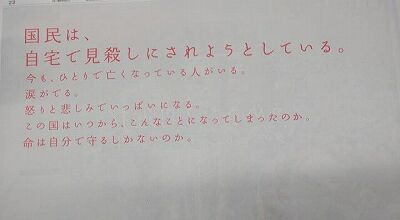 国民は、
自宅で見殺しにされようとしている。
今も、ひとりで亡くなっている人がいる。
涙がでる。
怒りと悲しみでいっぱいになる。
この国はいつから、こんなことになってしまったのか。
命は自分で守るしかないのか。